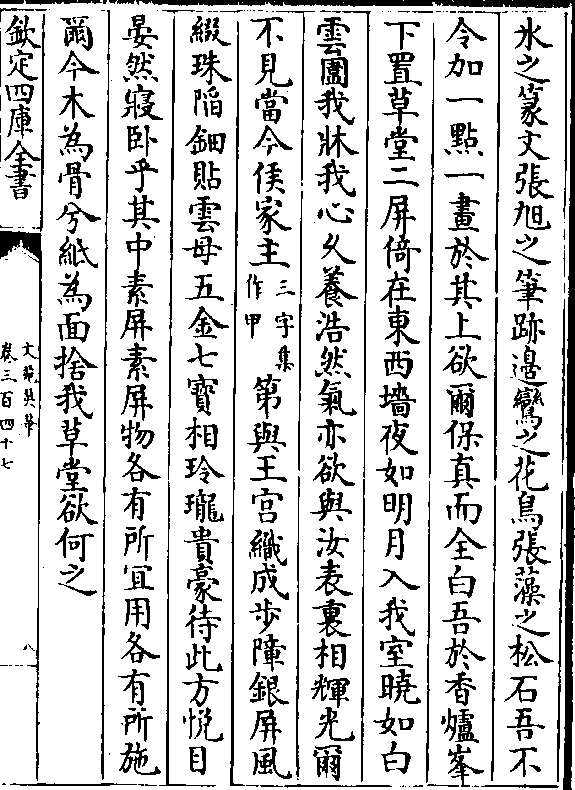 氷之篆文張旭之筆跡邊鸞之花鳥張藻之松石吾不
令加一點一畫於其上欲爾保真而全白吾於香爐峯
下置草堂二屏倚在東西墻夜如明月入我室曉如白
雲圍我牀我心乆養浩然氣亦欲與汝表裏相輝光爾
不見當今侯家主三字集作甲第與王宫織成步障銀屏風
綴珠䧟鈿貼雲母五金七寳相玲瓏貴豪待此方悦目
晏然寢卧乎其中素屏素屏物各有所宜用各有所施
爾今木為骨兮紙為面捨我草堂欲何之
欽定四庫全書
文苑英華
卷三百四十七
八